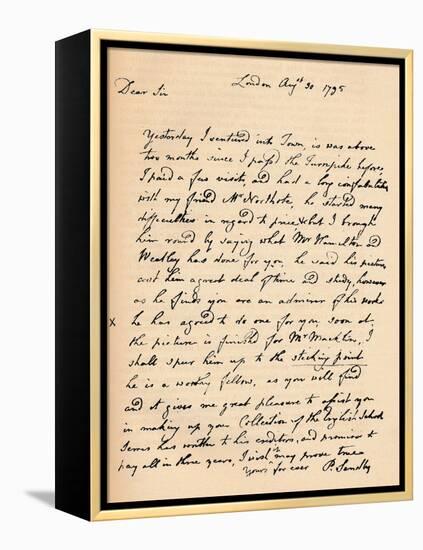 London Augst 30 1795
Dear Sir
Yesterday I ventured into Town, is was above
two months since I pass'd the Turnpike before,
I paid a few visits, and had a long confabulation
with my friend Mr Northcote, he started many
difficulties in regard to price & but I brought
him round by saying what Mr Hamilton and
Weatley has done for you, he said his pictures
cost him a great deal of time and study, however
as he finds you are an admirer of his works
x he has agreed to do one for you, soon as
the picture is finished for Mr Macklin, I
shall spur him up to the sticking point
he is a worthy fellow, as you will find
and it gives me great pleasure to assist you
in making up your Collection of the English School
has written to his creditors, and promises to
pay all in three years, I wish't may prove true
Yours for ever P. Sandby